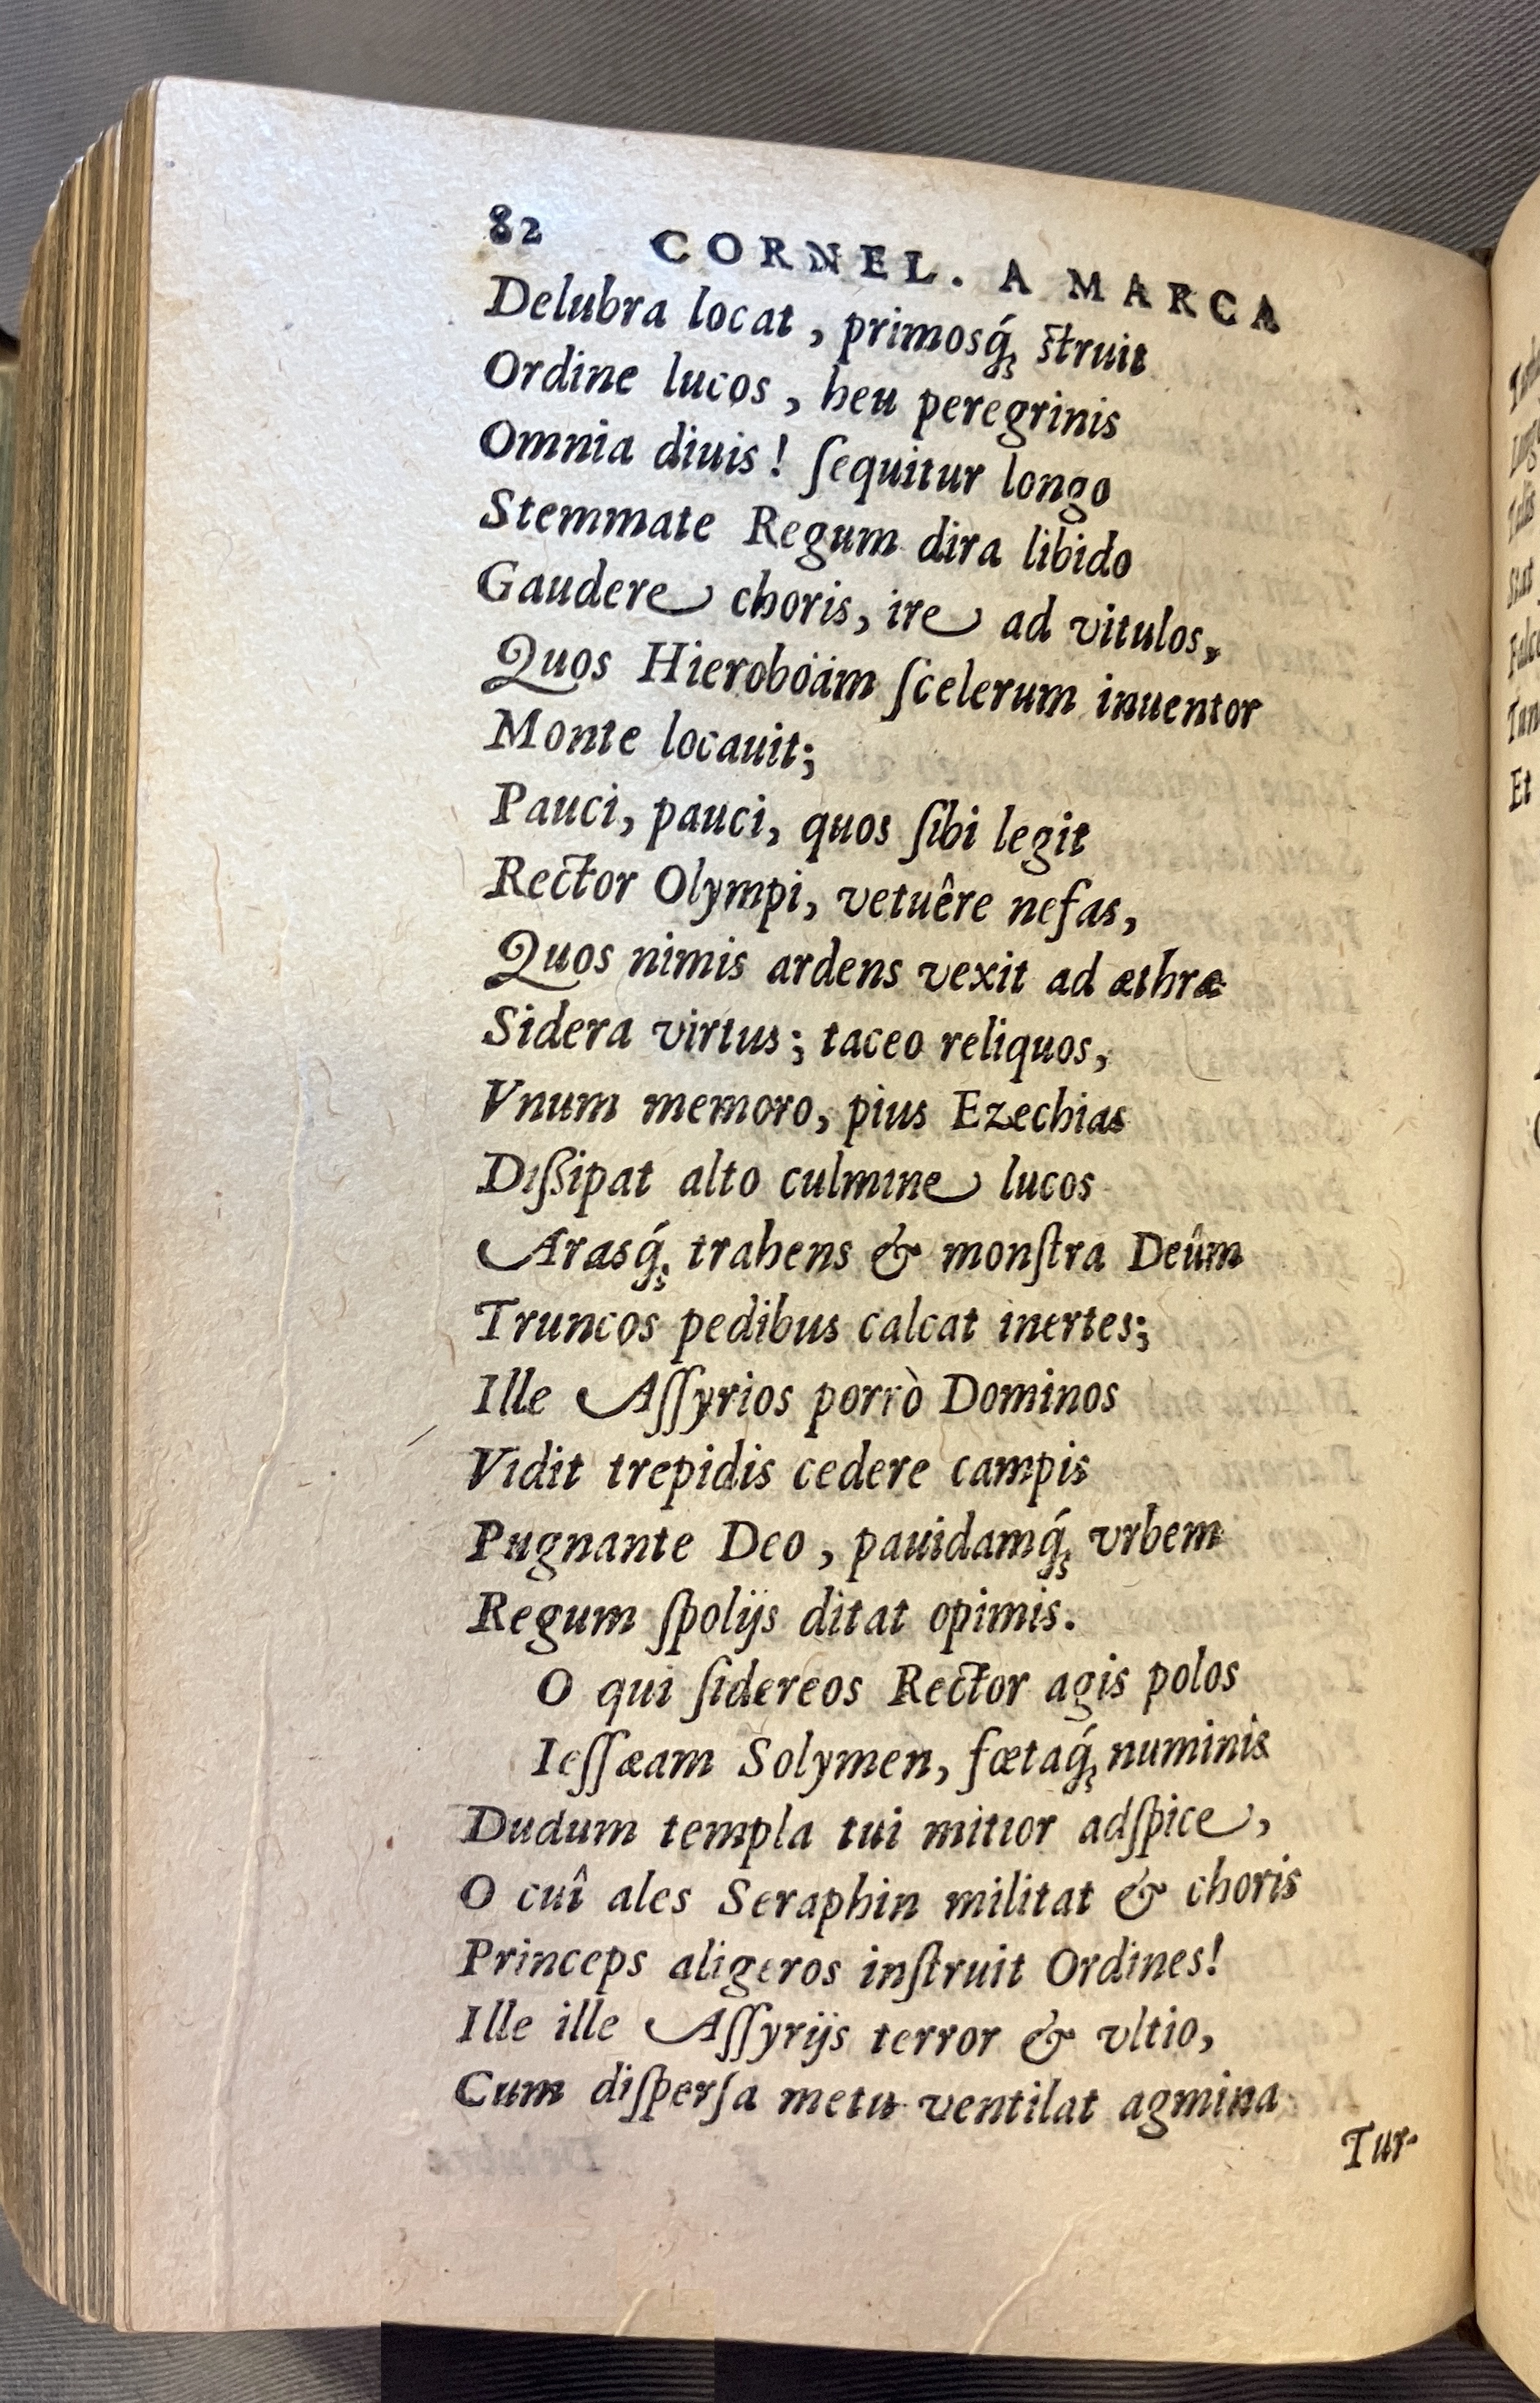 82 CORNEL. A MARCA
Delubra locat, primosq́; struit
Ordine lucos, heu peregrinis
Omnia diuis! ſequitur longo
Stemmate Regum dira libido
Gaudere choris, ire ad vitulos,
Quos Hieroboam ſcelerum inuentor
Monte locauit;
Pauci, pauci, quos ſibi legit
Rector Olympi, vetuêre nefas,
Quos nimis ardens vexit ad æthræ
Sidera virtus; taceo reliquos,
Vnum memoro, pius Ezechias
Diſſipat alto culmine lucos
Arasq́; trahens & monſtra Deûm
Truncos pedibus calcat inertes;
Ille Aſſyrios porrò Dominos
Vidit trepidis cedere campis
Pugnante Deo, pauidamq́; vrbem
Regum ſpolijs ditat opimis.
O qui ſidereos Rector agis polos
Ieſſæam Solymen, fœtaq́; numinis
Dudum templa tui mitior adſpice,
O cuî ales Seraphin militat & choris
Princeps aligeros inſtruit Ordines!
Ille ille Aſſyrijs terror & vltio,
Cum diſperſa metu ventilat agmina
Tur-